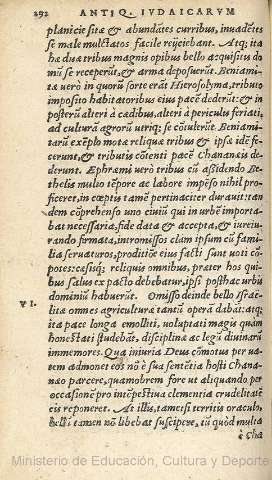 292 ANTIQ. IVDAICARVM
planicie sitæ & abundātes curribus, inuadētes
se male mulctatos facile reijciebant. Atq; ita
hæ duæ tribus magnis opibus bello acquisitis do
mū se receperūt, & arma deposuerūt. Beniami-
tæ verò in quorū sorte erāt Hierosolyma, tributo
imposito habitatoribus eius pacē dederūt: & in
posterū alteri à cædibus, alteri à periculo feriati,
ad culturā agrorū utriq; se cōtulerūt. Beniami-
tarū exēplo motæ reliquæ tribus & ipsæ idē fe-
cerunt, & tributis cōtenti pacē Chananæis de-
derunt. Ephrami verò tribus cū assidendo Be-
thelis multo tēpore ac labore impēso nihil prof-
ficeret, in cœptis tamē pertinaciter durauit: tan
dem cōprehenso uno ciuiū qui in urbē importa-
bat necessaria, fide data & accepta, & iureiu-
rando firmata, intromissos clam ipsum cū fami-
lia seruaturos, proditiōe eius facti sunt uoti cō-
potes: cæsisq; reliquis omnibus, præter hos qui-
bus salus ex pacto debebatur, ipsi posthac urbis
dominiū habuerūt. Omisso deinde bello Israe-
VI. litæ omnes agriculturæ tantū opera dabāt: atq;
ita pace longa emolliti, uoluptati magis quàm
honestati studebāt, disciplinæ ac legū diuinarū
immemores. Qua iniuria Deus cōmotus per ua-
tem admonet eos nō è sua sentētia hosti Chana-
næo parcere, quamobrem fore ut aliquando per
occasionē pro intēpestiua clementia crudelitatē
eis reponeret. At illis, tametsi territis oraculo,
belli tamen nō libebat suscipere, tū quòd multa
è Cha
Ministerio de Educación, Cultura y Deporte